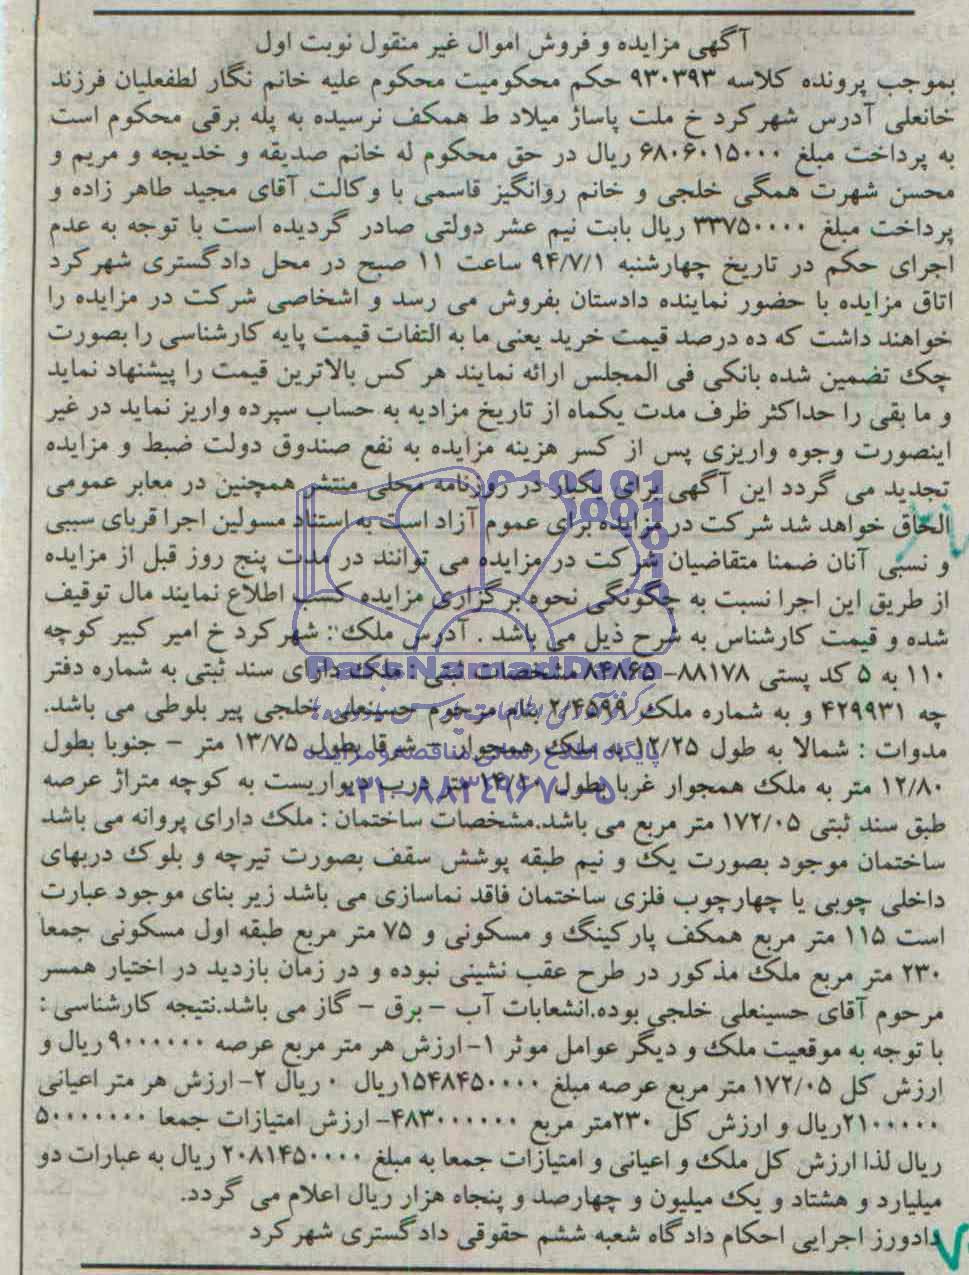 آگهی مزایده و فروش اموال غیر منقول نوبت اول
بموجب پرونده کلاسه ۹۳۰۳۹۳ حکم محکومیت محکوم علیه خانم نگار لطفعلیان فرزند
خانعلی آدرس شهرکرد خ ملت پاساژ میلاد ط همکف نرسیده به پله برقی محکوم است
به پرداخت مبلغ ۶۸۰۶۰۱۵۰۰۰ ریال در حق محکوم له خانم صدیقه و خدیجه و مریم و
محسن شهرت همگی خلجی و خانم روانگیز قاسمی با وکالت آقای مجید طاهر زاده و
پرداخت مبلغ ۳۳۷۵۰۰۰۰ ریال بابت نیم عشر دولتی صادر گردیده است با توجه به عدم
اجرای حکم در تاریخ چهارشنبه ۹۴/۷/۱ ساعت ۱۱ صبح در محل دادگستری شهرکرد
اتاق مزایده با حضور نماینده دادستان بفروش می رسد و اشخاصی شرکت در مزایده را
خواهند داشت که ده درصد قیمت خرید یعنی ما به التفات قیمت پایه کارشناسی را بصورت
چک تضمین شده بانکی فی المجلس ارائه نمایند هر کس بالاترین قیمت را پیشنهاد نماید
و ما بقی را حداکثر ظرف مدت یکماه از تاریخ مزادیه به حساب سپرده واریز نماید در غیر
اینصورت وجوه واریزی پس از کسر هزینه مزایده به نفع صندوق دولت ضبط و مزایده
تجدید می گردد این آگهی برای یکبار در روزنامه محلی منتشر همچنین در معابر عمومی
الحاق خواهد شد شرکت در مزایده برای عموم آزاد است به استناد مسولین اجرا قربای سببی
و نسبی آنان ضمنا متقاضیان شرکت در مزایده می توانند در مدت پنج روز قبل از مزایده
از طریق این اجرا نسبت به چگونگی نحوه برگزاری مزایده کسب اطلاع نمایند مال توقیف
شده و قیمت کارشناس به شرح ذیل می باشد . آدرس ملک : شهرکرد خ امیر کبیر کوچه
۱۱۰ به ۵ کد پستی ۸۸۱۷۸-۸۴۸۶۵ مشخصات ثبتی : ملک دارای سند ثبتی به شماره دفتر
چه ۴۲۹۹۳۱ و به شماره ملک ۲/۴۵۹۹ بنام مرحوم حسینعلی خلجی پیر بلوطی می باشد.
مدوات : شمالا به طول ۱۲/۲۵ به ملک همجوار - شرقا بطول ۱۳/۷۵ متر - جنوبا بطول
۱۲/۸۰ متر به ملک همجوار غربا بطول ۱۴/۵۰ متر درب دیواریست به کوچه متراژ عرصه
طبق سند ثبتی ۱۷۲/۰۵ متر مربع می باشد.مشخصات ساختمان : ملک دارای پروانه می باشد
ساختمان موجود بصورت یک و نیم طبقه پوشش سقف بصورت تیرچه و بلوک دربهای
داخلی چوبی یا چهارچوب فلزی ساختمان فاقد نماسازی می باشد زیر بنای موجود عبارت
است ۱۱۵ متر مربع همکف پارکینگ و مسکونی و ۷۵ متر مربع طبقه اول مسکونی جمعا
۲۳۰ متر مربع ملک مذکور در طرح عقب نشینی نبوده و در زمان بازدید در اختیار همسر
مرحوم آقای حسینعلی خلجی بوده.انشعابات آب - برق - گاز می باشد.نتیجه کارشناسی :
با توجه به موقعیت ملک و دیگر عوامل موثر ۱- ارزش هر متر مربع عرصه ۹۰۰۰۰۰۰ ریال و
ارزش کل ۱۷۲/۰۵ متر مربع عرصه مبلغ ۱۵۴۸۴۵۰۰۰۰ریال ۰ ریال ۲- ارزش هر متر اعیانی
۲۱۰۰۰۰۰ریال و ارزش کل ۲۳۰متر مربع ۴۸۳۰۰۰۰۰۰- ارزش امتیازات جمعا ۵۰۰۰۰۰۰۰
ریال لذا ارزش کل ملک و اعیانی و امتیازات جمعا به مبلغ ۲۰۸۱۴۵۰۰۰۰ ریال به عبارات دو
میلیارد و هشتاد و یک میلیون و چهارصد و پنجاه هزار ریال اعلام می گردد.
دادورز اجرایی احکام دادگاه شعبه ششم حقوقی دادگستری شهرکرد
ParsNamadData
پایگاه اطلاع رسانی مناقصه و مزایده
۰۲۱-۸۸۳۴۹۶۷۰-۵